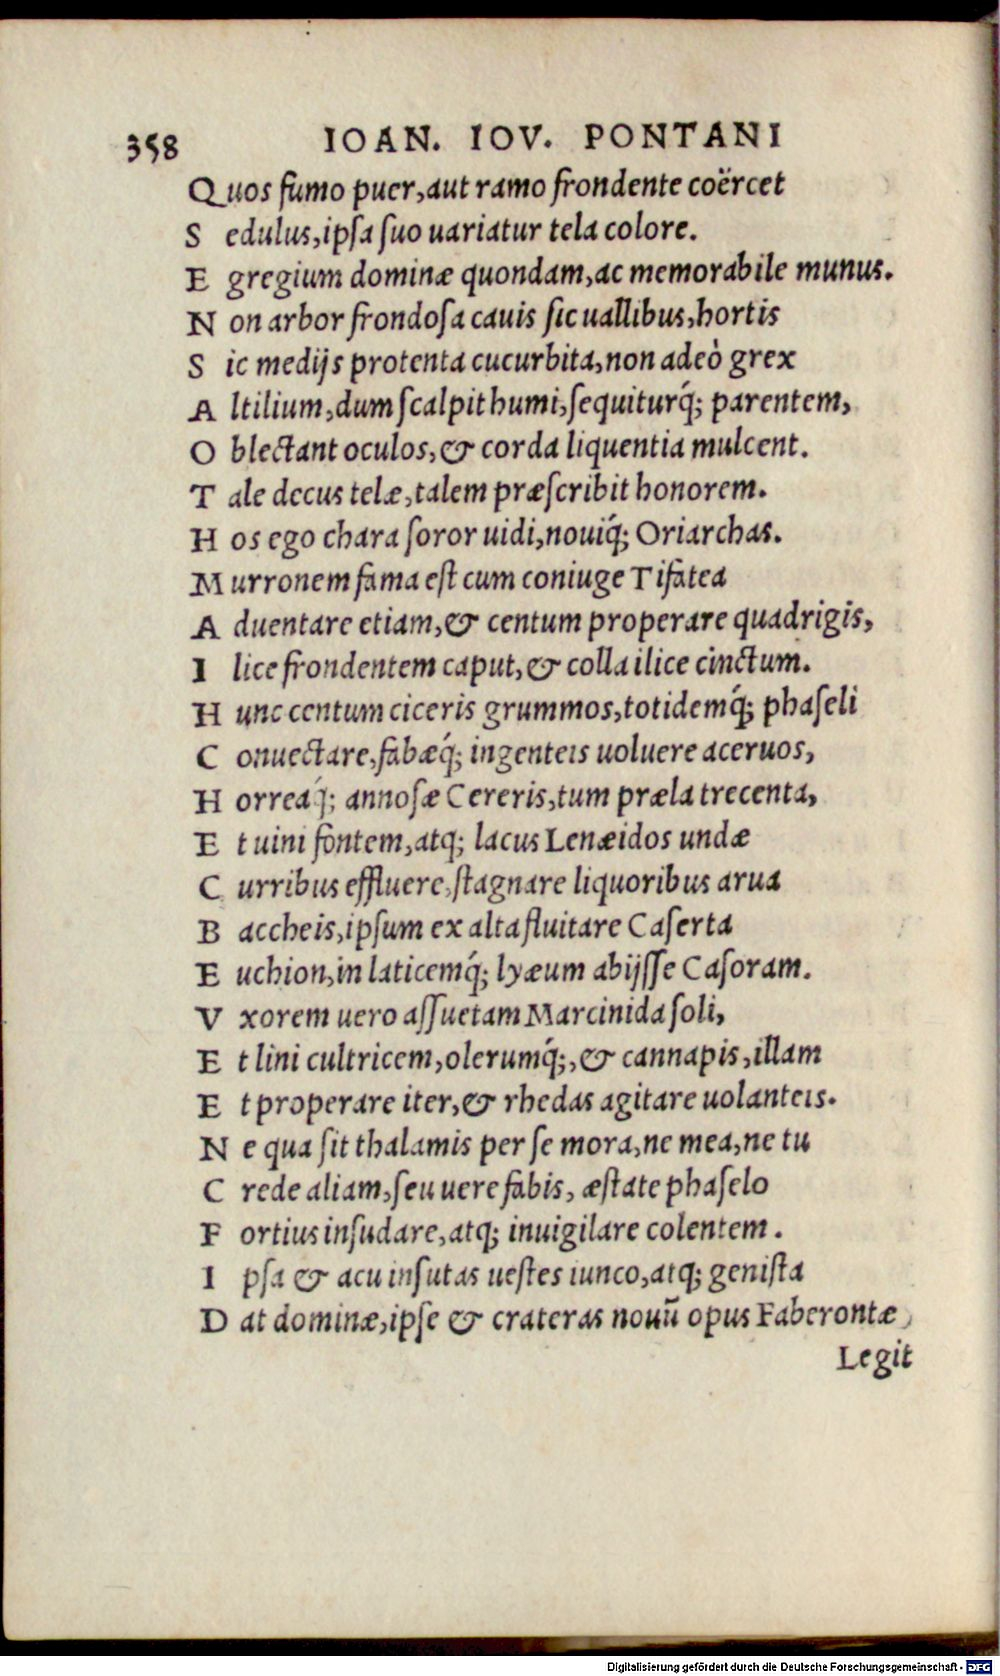 358 IOAN. IOV. PONTANI
Quos fumo puer, aut ramo frondente coërcet
S edulus, ipſa ſuo uariatur tela colore.
E gregium dominæ quondam, ac memorabile munus.
N on arbor frondoſa cauis ſic uallibus, hortis
S ic medijs protenta cucurbita, non adeò grex
A ltilium, dum ſcalpit humi, ſequiturq́; parentem,
O blectant oculos, & corda liquentia mulcent.
T ale decus telæ, talem præſcribit honorem.
H os ego chara ſoror uidi, nouiq́; Oriarchas.
M urronem fama eſt cum coniuge Tifatea
A duentare etiam, & centum properare quadrigis,
I lice frondentem caput, & colla ilice cinctum.
H unc centum ciceris grummos, totidemq́; phaſeli
C onuectare, fabæq́; ingenteis uoluere aceruos,
H orreaq́; annoſæ Cereris, tum præla trecenta,
E t uini fontem, atq; lacus Lenæidos undæ
C urribus effluere, ſtagnare liquoribus arua
B accheis, ipſum ex alta fluitare Caſerta
E uchion, in laticemq́; lyæum abijſſe Caſoram.
V xorem uero aſſuetam Marcinida ſoli,
E t lini cultricem, olerumq́;, & cannapis, illam
E t properare iter, & rhedas agitare uolanteis.
N e qua ſit thalamis per ſe mora, ne mea, ne tu
C rede aliam, ſeu uere fabis, æſtate phaſelo
F ortius inſudare, atq; inuigilare colentem.
I pſa & acu inſutas ueſtes iunco, atq; geniſta
D at dominæ, ipſe & crateras nouū opus Faberontæ,
Legit
Digitalisierung gefördert durch die Deutsche Forschungsgemeinschaft - DFG